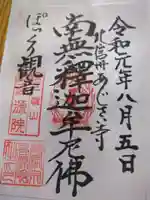 令和元年八月五日
北信州あじさい寺
南無釋迦牟尼佛
ぽっくり観音